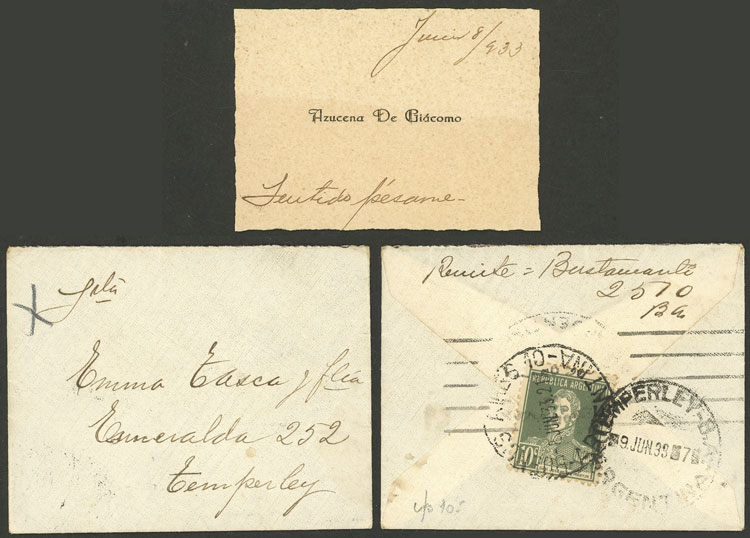 Junio 8/933
Azucena De Giácomo
Sentido pésame-
Srta
Emma Tasca y flia
Esmeralda 252
Temperley
Remite = Bustamante
2570
BA
REPUBLICA ARGENTINA
10c
TEMPERLEY-B.A.
9 JUN.33 7
ARGENTINA
c/p 10.-